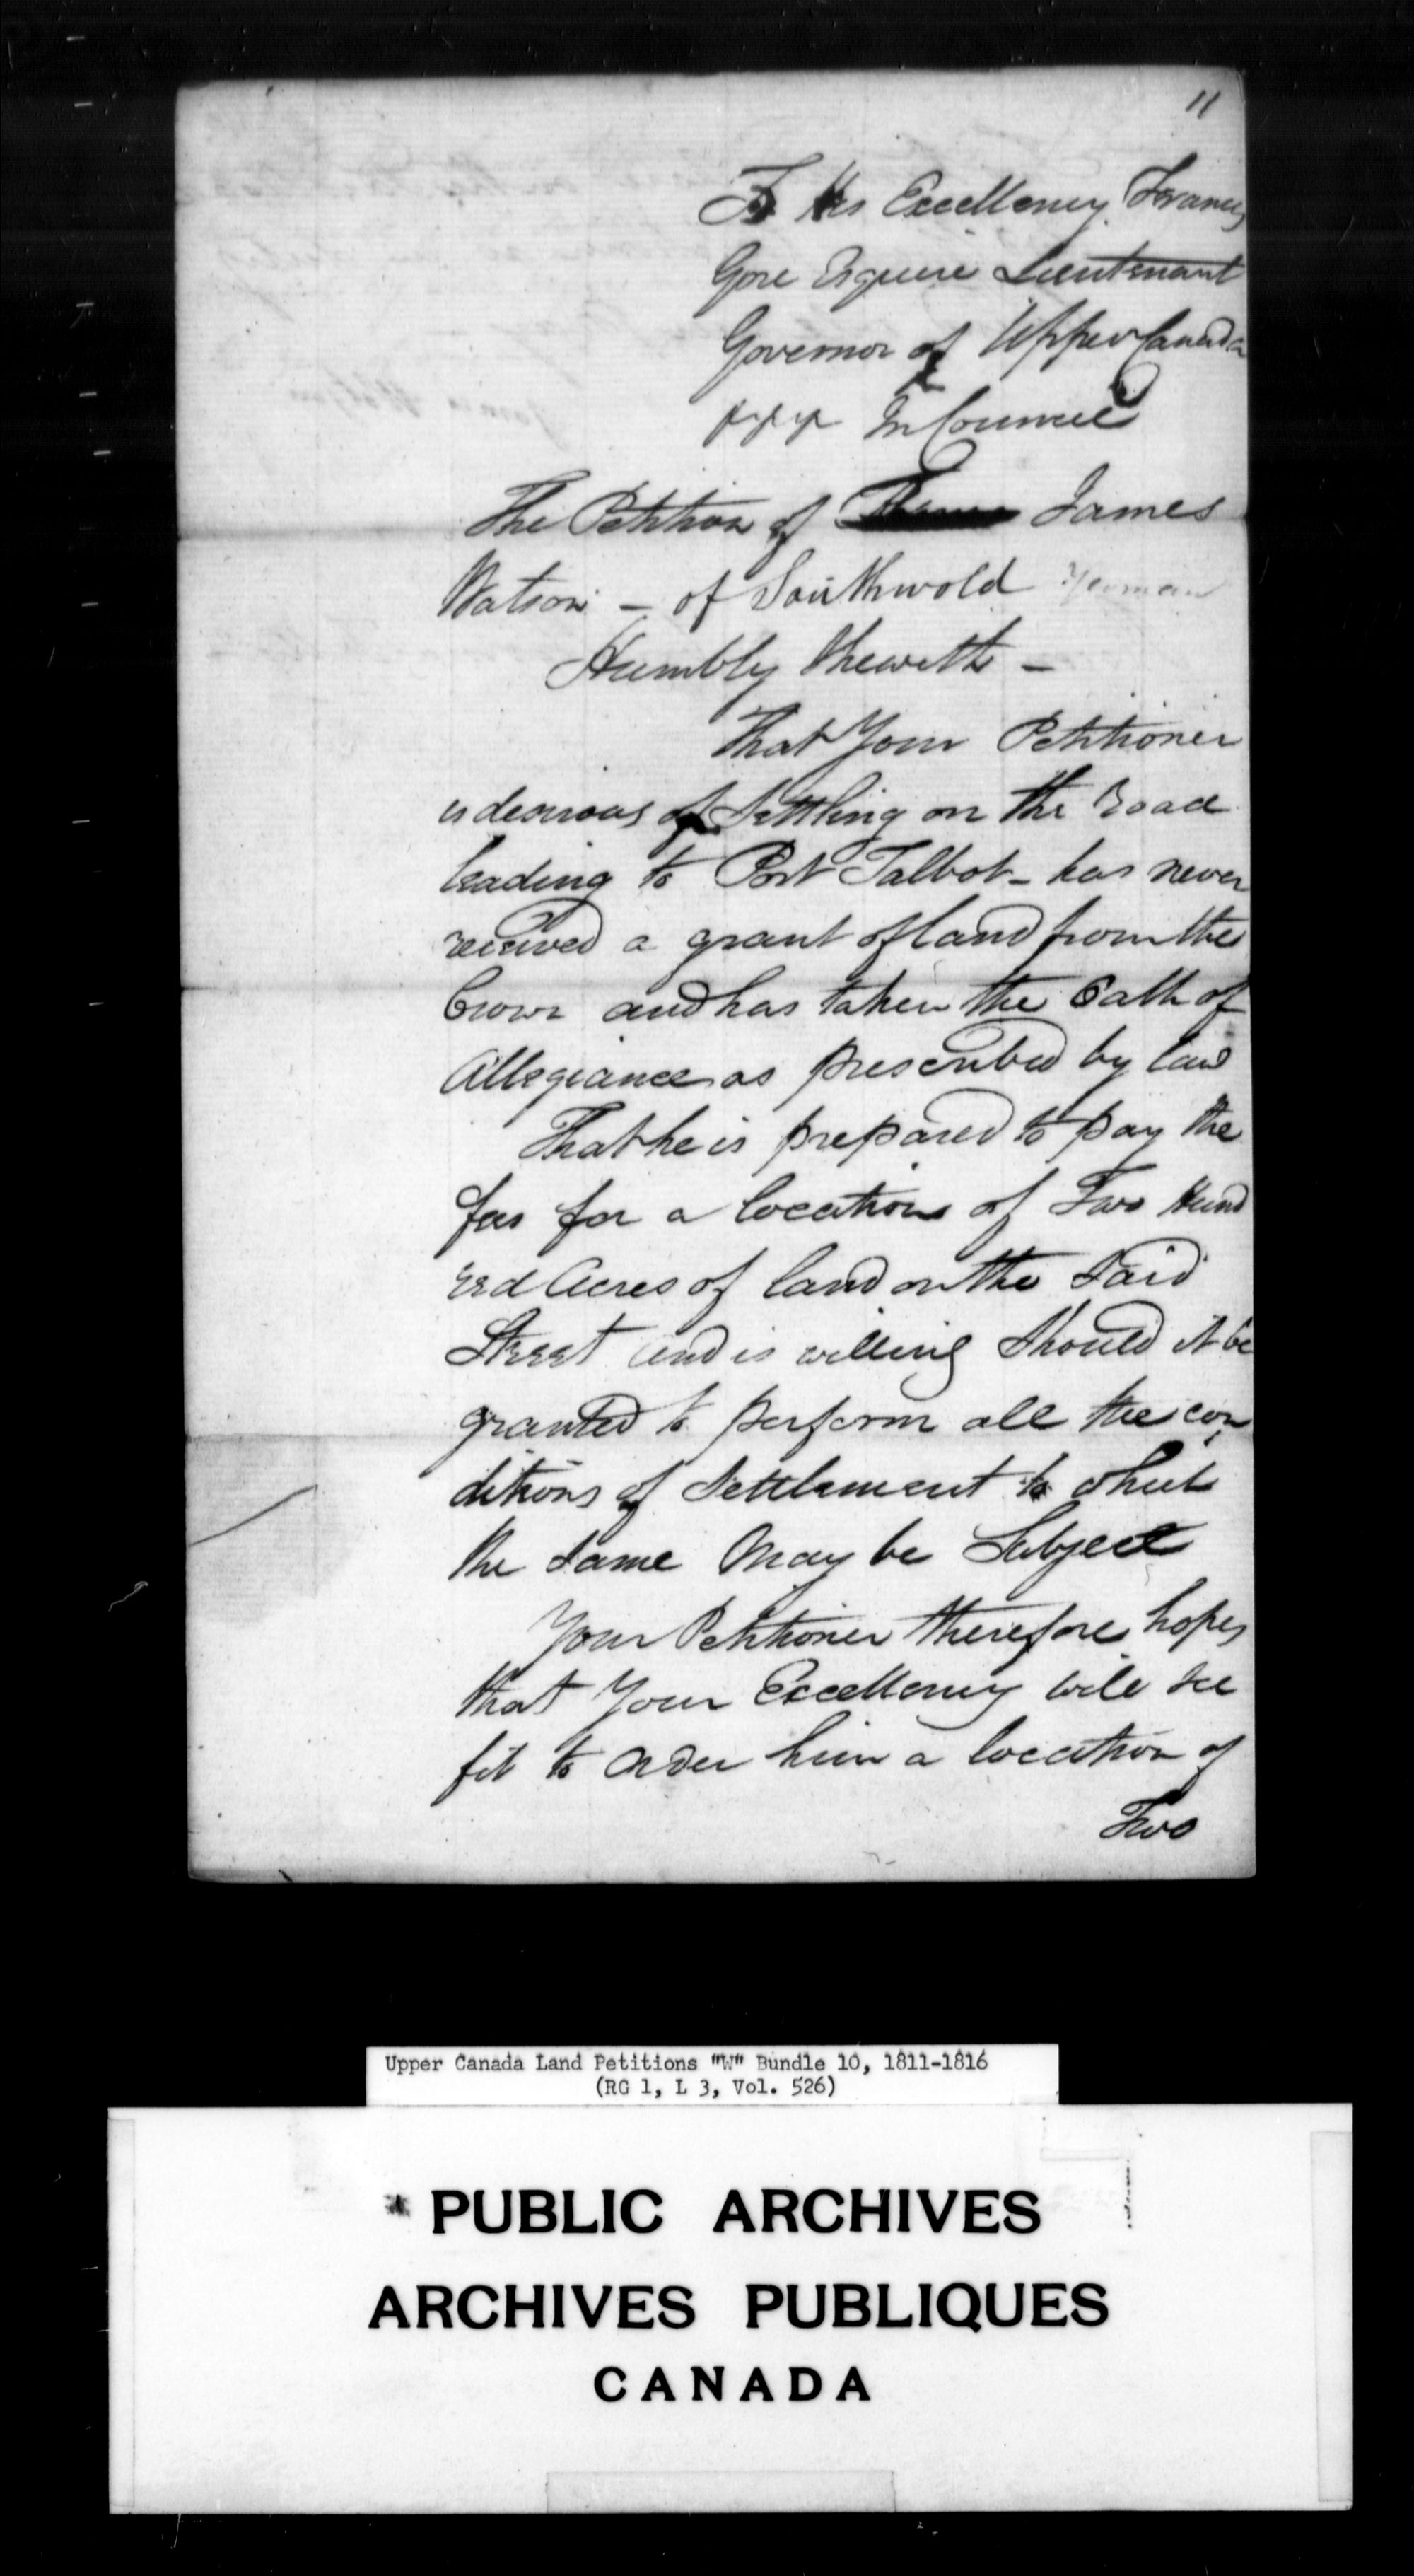 11
To His Excellency Francis
Gore Esquire Lieutenant
Governor of Upper Canada
&c &c &c In Council
The Petition of James
Watson – of Southwold Yeoman
Humbly Sheweth –
That Your Petitioner
is desirous of Settling on the Road
leading to Port Talbot – has never
received a grant of land from the
Crown and has taken the Oath of
Allegiance as prescribed by law
That he is prepared to pay the
fees for a location of Two Hund
red Acres of land on the Said
Street and is willing Should it be
granted to perform all the con
ditions of Settlement to which
the Same May be Subject
Your Petitioner therefore hopes
that Your Excellency will see
fit to order him a location of
Two
Upper Canada Land Petitions "W" Bundle 10, 1811-1816
(RG 1, L 3, Vol. 526)
PUBLIC ARCHIVES
ARCHIVES PUBLIQUES
CANADA